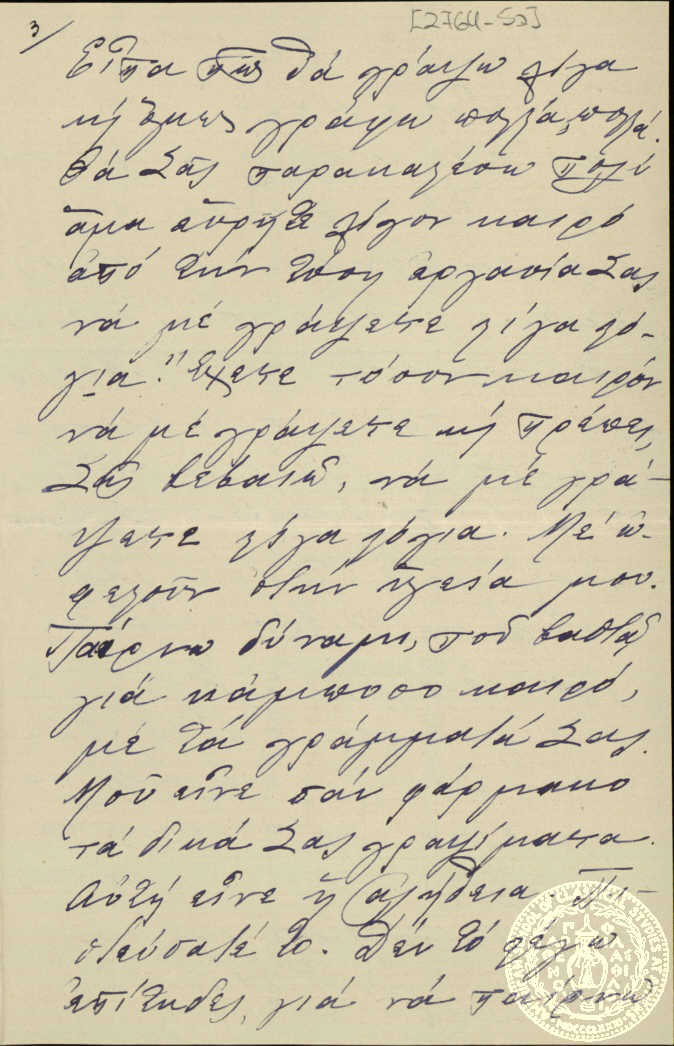 3/
[2764-52]
Εἶπα πῶς θά γράψω λίγα
κι' ὅμως γράφω πολλά, πολλά.
Θά Σᾶς παρακαλέσω πολύ
ἅμα εὕρητε λίγον καιρό
ἀπό τήν τόση ἐργασία Σας
νά μέ γράψετε λίγα λό-
για. Ἔχετε τόσον καιρόν
νά μέ γράψετε κι' πρέπει,
Σᾶς βεβαιῶ, νά μέ γρά-
ψετε λίγα λόγια. Μέ ὠ-
φελοῦν στήν ὑγεία μου.
Παίρνω δύναμι, πού βαστᾷ
γιά κάμποσο καιρό,
μέ τά γράμματά Σας.
Μοῦ εἶνε σάν φάρμακο
τά δικά Σας γραψίματα.
Αὐτή εἶνε ἡ ἀλήθεια. Πι-
στεύσατέ το. Δέν τό λέγω
ἐπίτηδες, γιά νά παίρνω